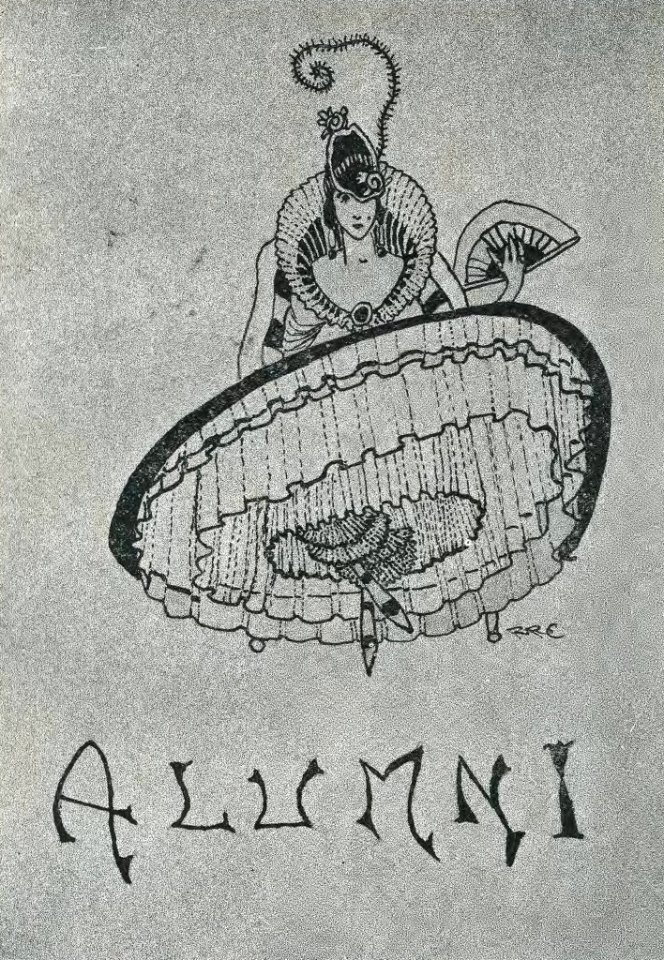 BRE
ALUMNI